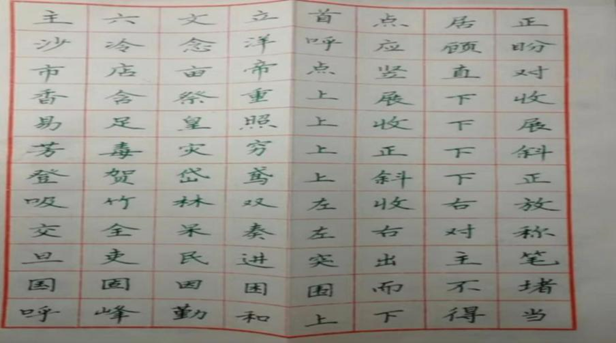 主六文立首点居正
沙冷念洋呼应顾盼
市店亩帝点竖直对
香含祭重上展下收
易足皇照上收下展
芳毒灾穷上正下斜
登贺岱鸢上斜下正
吸竹林双左收右放
交全采奏左右对称
旦吏民进突出主笔
国固因困围而不堵
呼峰勤和上下得当